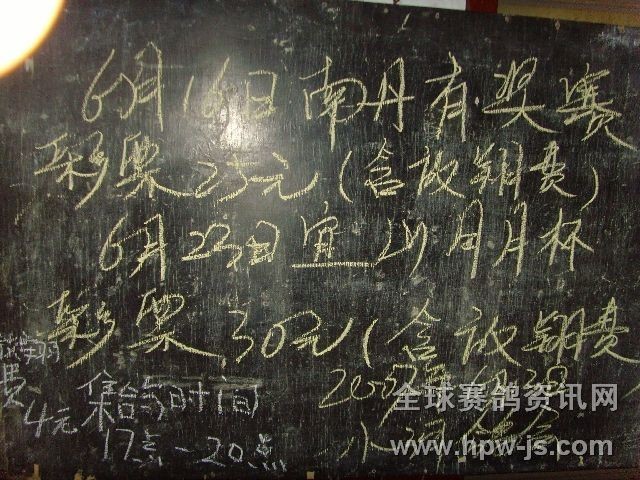 6月16日南丹有奖赛
彩票25元(含放翔费)
6月23日宜州月月杯
彩票30元(含放翔费
放翔
费
4元
集合时间
17点-20点
全球赛鸽资讯网
www.hpw-js.com